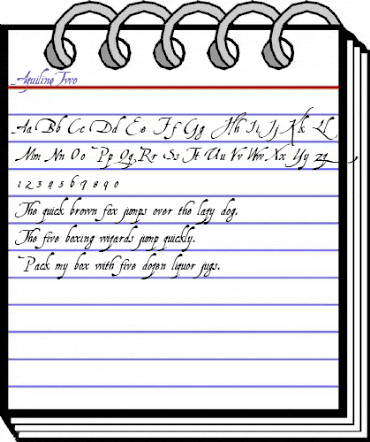 Aquiline Two
Aa Bb Cc Dd Ee Ff Gg Hh Ii Jj Kk Ll
Mm Nn Oo Pp Qq Rr Ss Tt Uu Vv Ww Xx Yy Zz
1 2 3 4 5 6 7 8 9 0
The quick brown fox jumps over the lazy dog.
The five boxing wizards jump quickly.
Pack my box with five dozen liquor jugs.